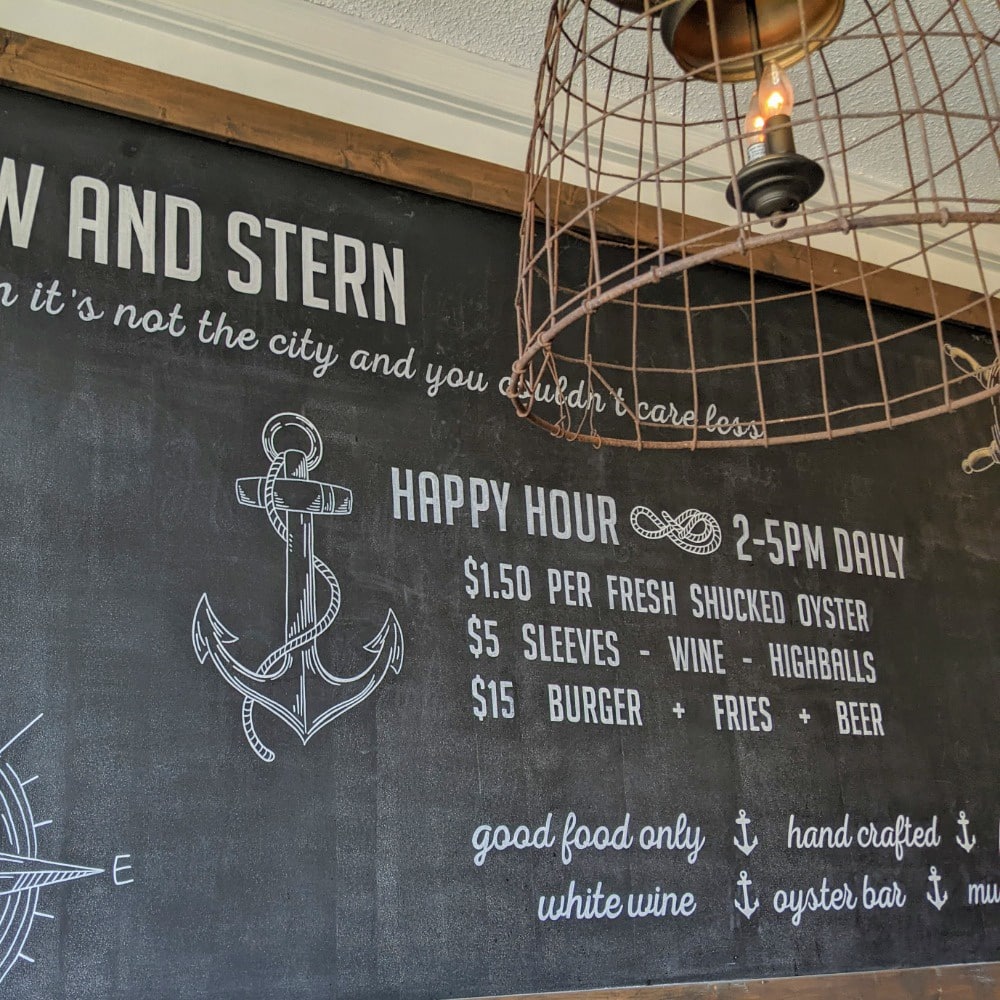 W AND STERN
n it's not the city and you couldn't care less
HAPPY HOUR 2-5PM DAILY
$1.50 PER FRESH SHUCKED OYSTER
$5 SLEEVES - WINE - HIGHBALLS
$15 BURGER + FRIES + BEER
good food only hand crafted
white wine oyster bar mu
E